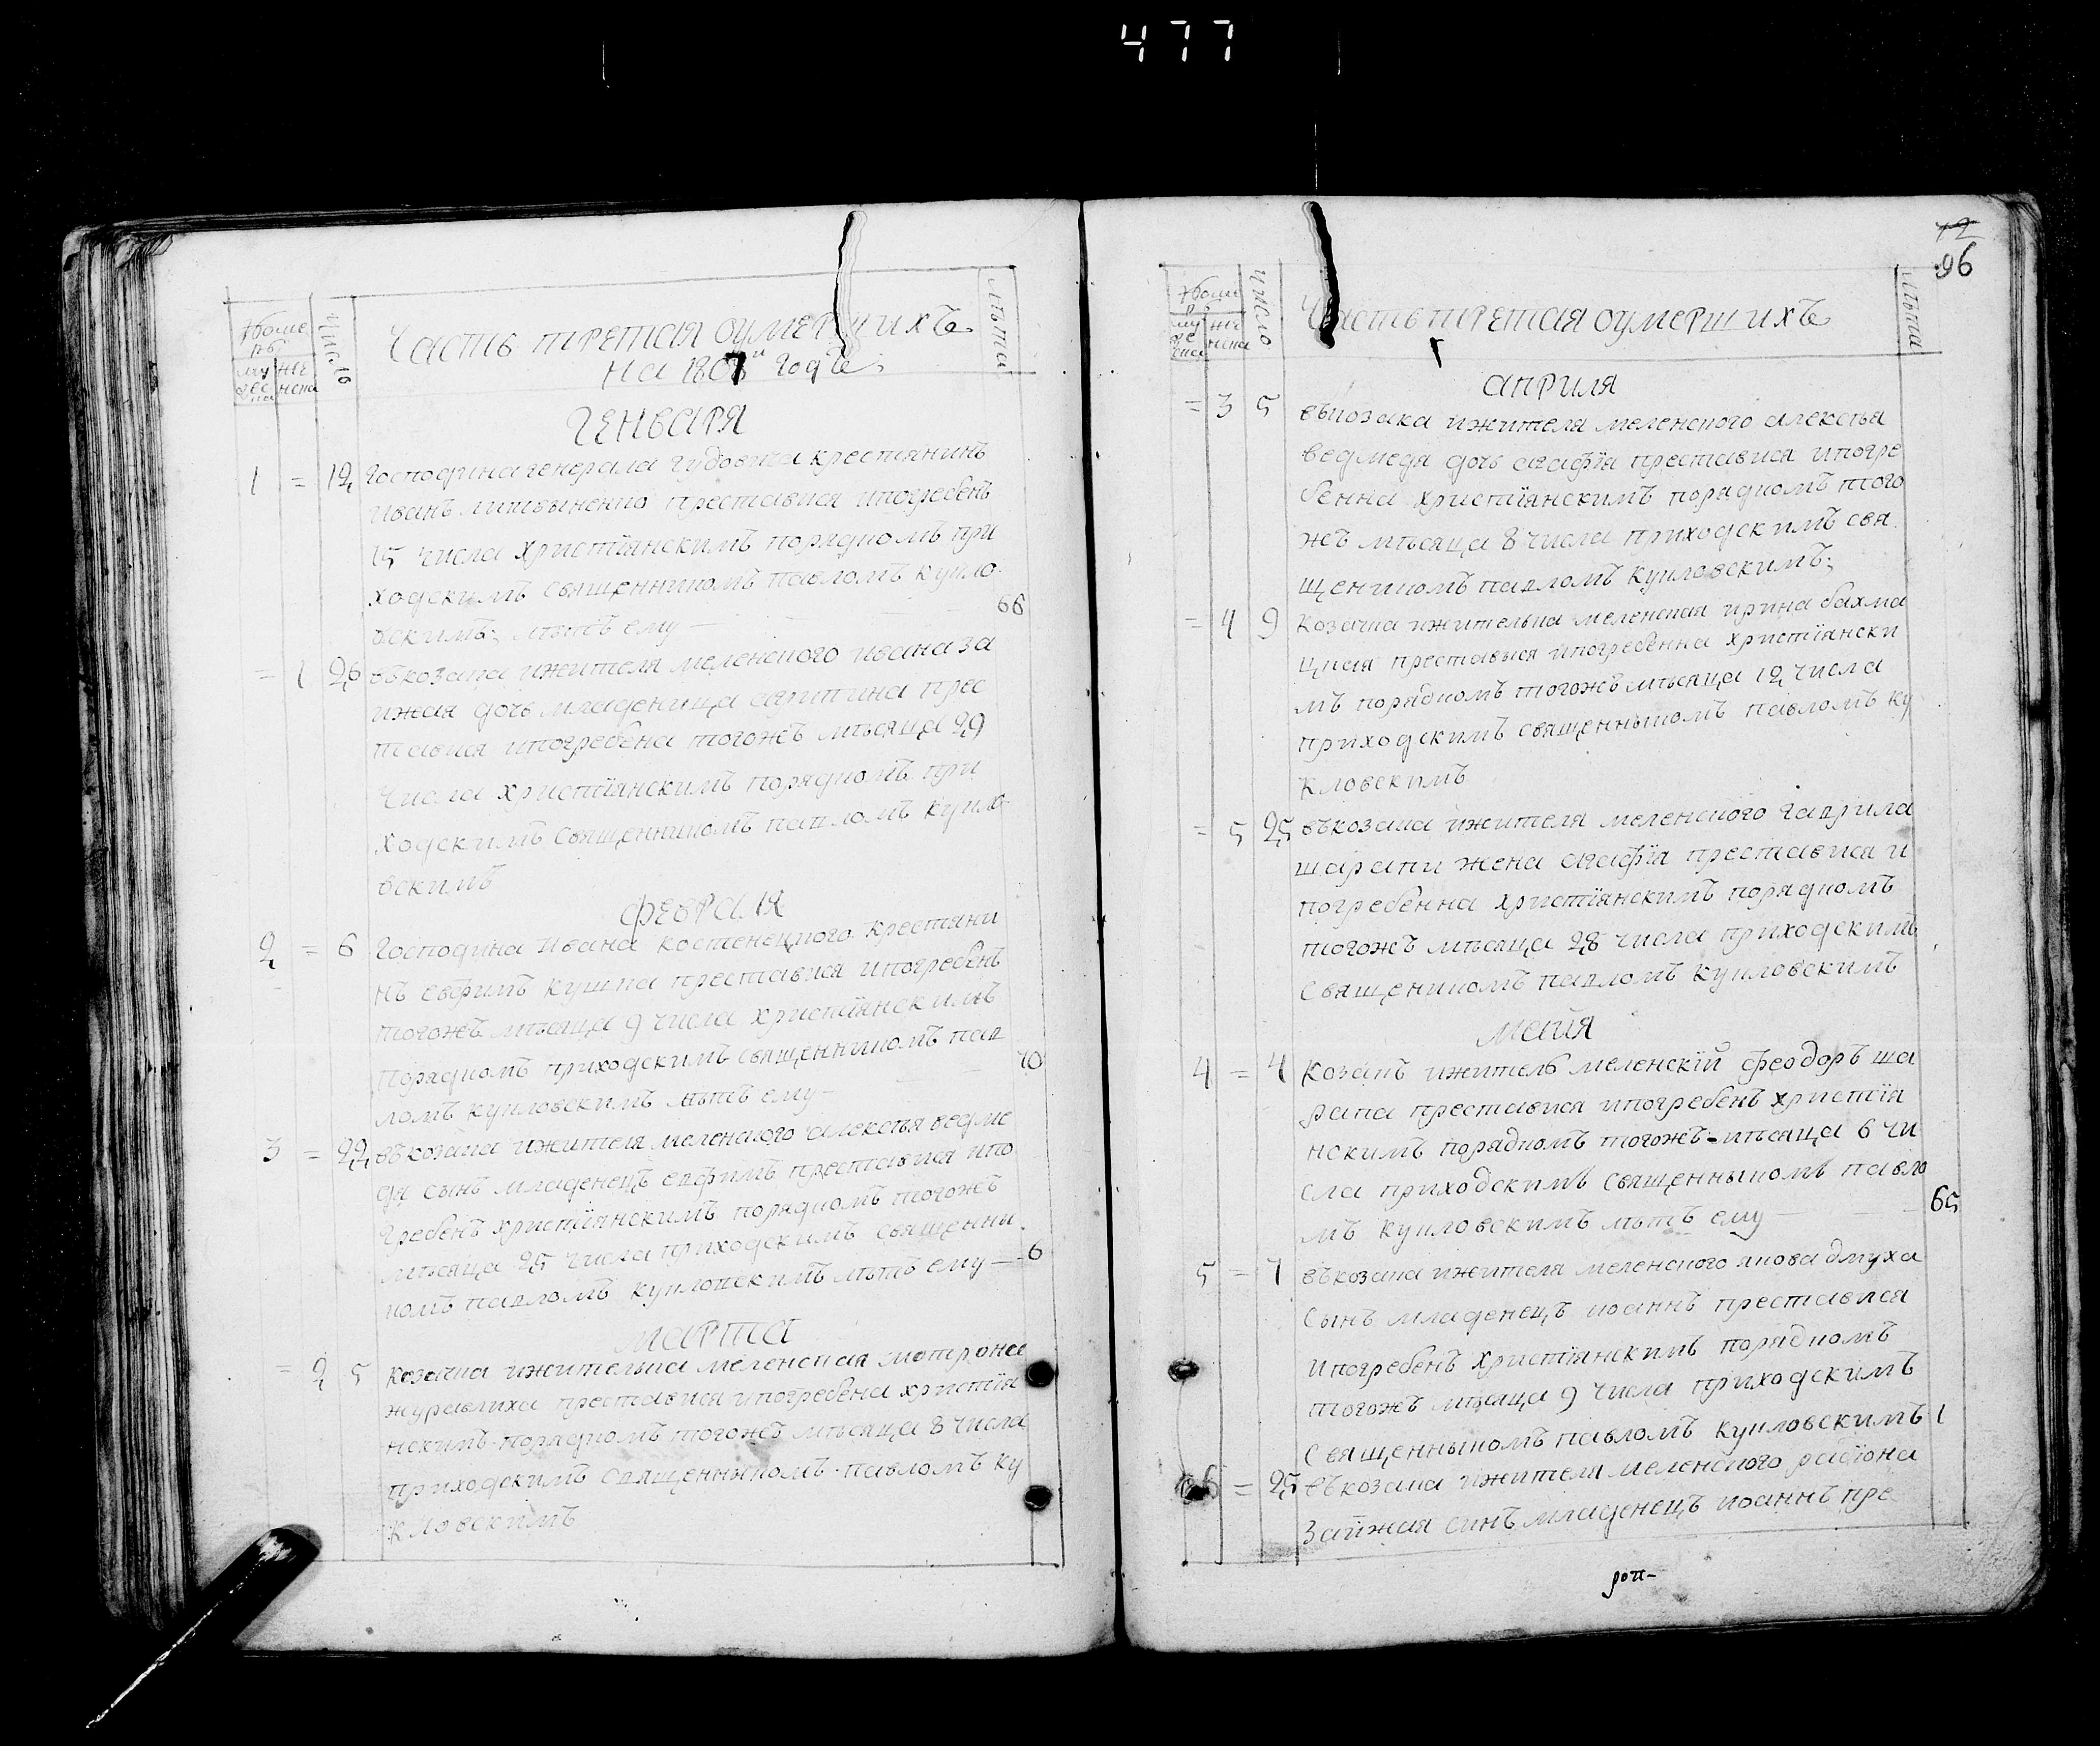 477
число
лѣта
часть третая оумершихъ
на 1807и годъ;
генваря
1 = 12 господина генерала гудовича крестянинъ
иванъ литвыненко преставися ипогребенъ
15 числа христіянскимъ порядкомъ при
ходскимъ священникомъ павломъ кукло
вскимъ; лѣтъ ему — 66
= 1 26 въкозака ижителя меленского ивана за
ижая дочь младеница агрипина прес
тавися ипогребена тогожъ мѣсяца 29
числа христіянскимъ порядкомъ при
ходскимъ священникомъ павломъ кукло
вскимъ
февраля
2 = 6 господина ивана костенецкого крестяни
нъ евфимъ кушна преставися ипогребенъ
тогожъ мѣсяца 9 числа христіянскимъ
порядкомъ приходскимъ священникомъ пав
ломъ кукловскимъ лѣтъ ему — 70
3 = 22 въкозака ижителя меленского алексѣя ведме
дя сынъ младенецъ евфимъ преставися ипо
гребенъ христіянскимъ порядкомъ тогожъ
мѣсяца 25 числа приходскимъ священни
комъ павломъ кукловскимъ лѣтъ ему — 6
марта
= 2 5 козачка ижителька меленская мотрона
журавлиха преставися ипогребена христія
нскимъ порядкомъ тогожъ мѣсяца 8 числа
приходскимъ священныкомъ павломъ ку
кловскимъ
12
96
число
лѣта
часть третая оумершихъ
априля
= 3 5 въкозака ижителя меленского алексѣя
ведмедя дочь агафія преставися ипогре
бенна христіянскимъ порядкомъ того
жъ мѣсяца 8 числа приходскимъ свя
щеникомъ павломъ кукловскимъ;
= 4 9 козачка ижителька меленская ирина бахма
цкая преставыся ипогребенна христіянски
мъ порядкомъ тогожъ мѣсяца 12 числа
приходскимъ священныкомъ павломъ ку
кловскимъ
= 5 25 въкозака ижителя меленского гаврила
шарапи жена агафія преставися и
погребенна христіянскимъ порядкомъ
тогожъ мѣсяца 28 числа приходскимъ
священикомъ павломъ кукловскимъ
маия
4 = 4 козакъ ижитель меленскій феодоръ ша
рапа преставися ипогребенъ христія
нскимъ порядкомъ тогожъ мѣсяца 6 чи
сла приходскимъ священныкомъ павло
мъ кукловскимъ лѣтъ ему — 65
5 = 7 въкозака ижителя меленского якова дмуха
сынъ младенецъ иоаннъ преставися
ипогребенъ христіянскимъ порядкомъ
тогожъ мѣсяца 9 числа приходскимъ
священныкомъ павломъ кукловскимъ 1
6 = 25 въкозака ижителя меленского радіона
заижая синъ младенецъ иоаннъ пре